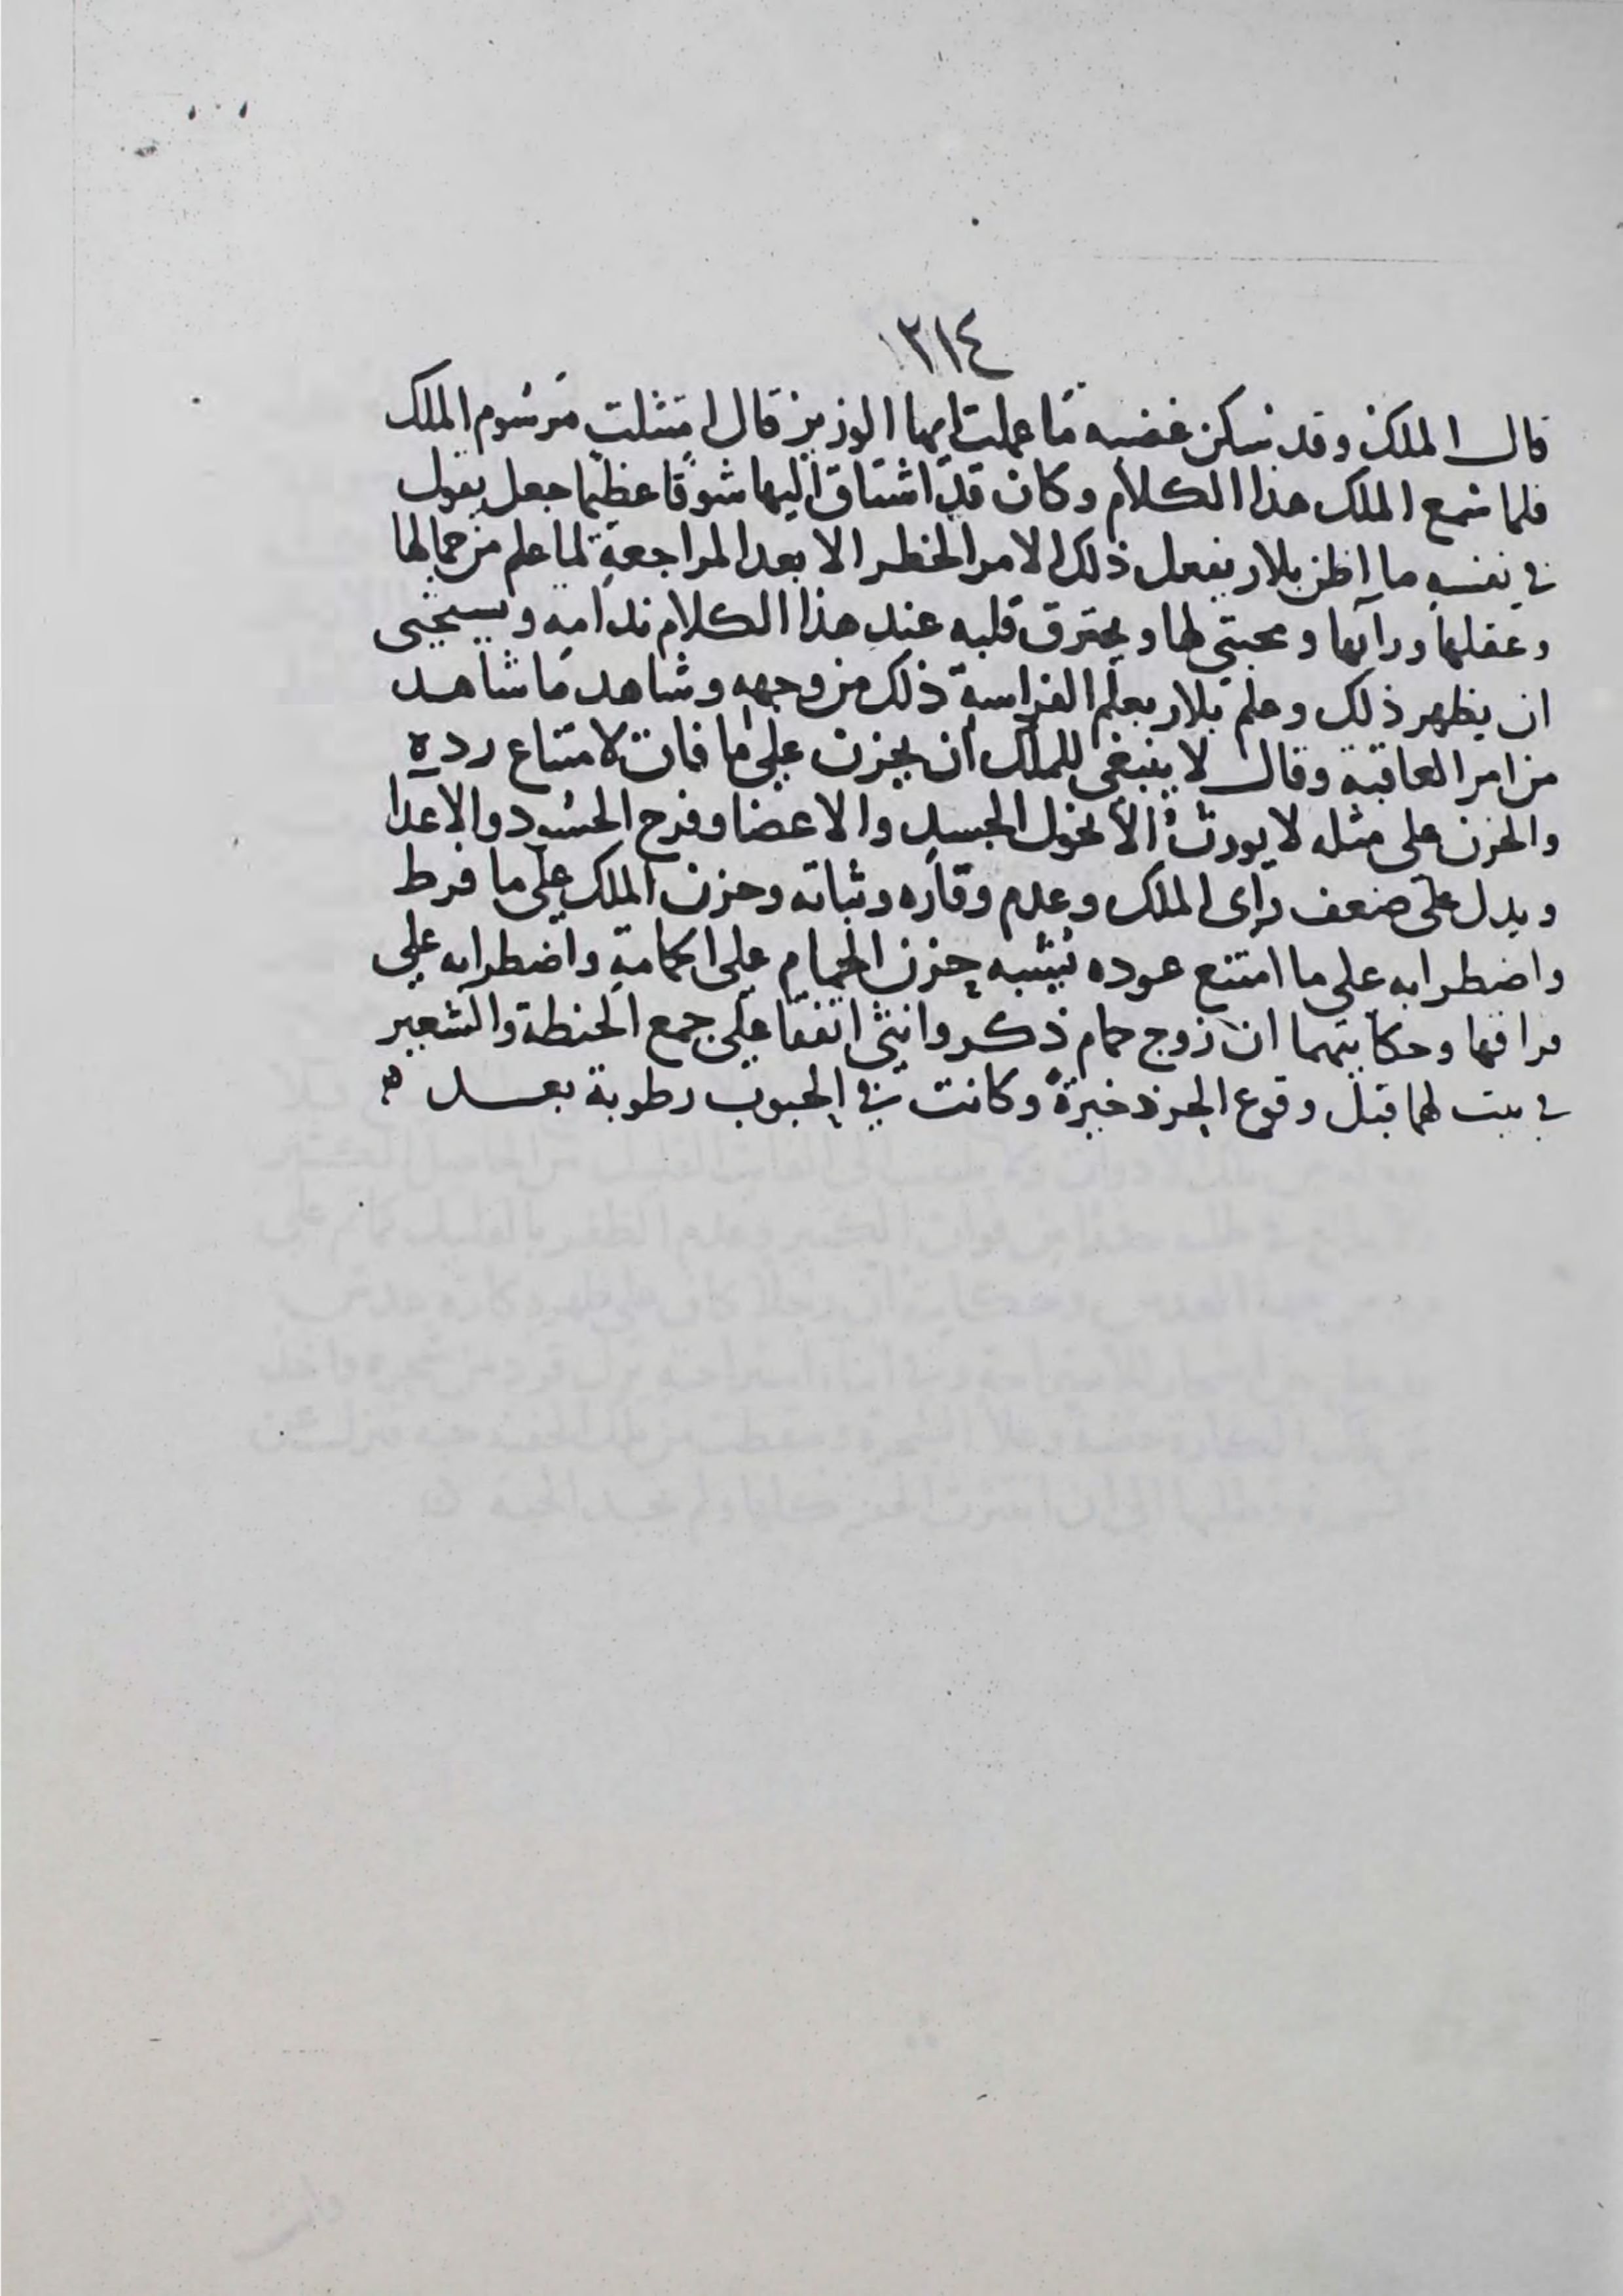 ٢١٤
قال الملك وقد سكن غضبه ما عملت ايها الوزير قال امتثلت مرسوم الملك
فلما سمع الملك هذا الكلام وكان قد اشتاق اليها شوقا عظيما جعل يقول
في نفسه ما اظن بلار يفعل ذلك الامر الخطر الا بعد المراجعة لما علم من جمالها
وعقلها ورآيها ومحبتي لها ويحترق قلبه عند هذا الكلام ندامه ويستحيى
ان يظهر ذلك وعلم بلار بعلم الفراسة ذلك من وجهه وشاهد ما شاهد
من امر العاقبة وقال لا ينبغى للملك ان يحزن على ما فات لامتناع رده
والحزن على مثله لا يورث الا نحول الجسد والاعضا وفرح الحسود والاعدا
ويدل على ضعف راى الملك وعدم وقاره وثباته وحزن الملك على ما فرط
واضطرابه على ما امتنع عوده يشبه حزن الحمام على واضطرابه على
فراقها وحكايتهما ان زوج حمام ذكر وانثى اتفقا على جمع الحنطة والشعير
في بيت لهما قبل وقوع ذخيرة وكانت في الحبوب رطوبة بعد